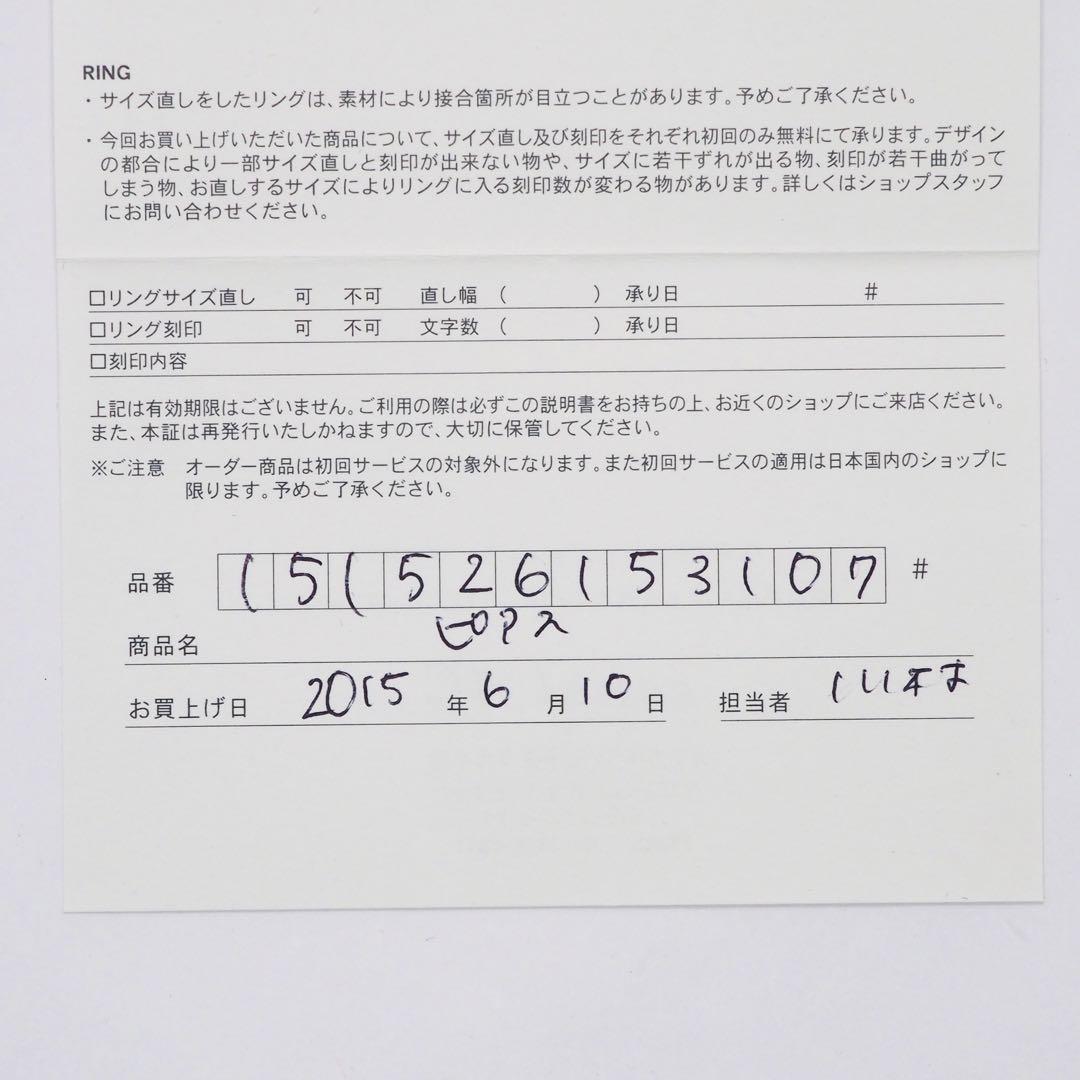 RING
・サイズ直しをしたリングは、素材により接合箇所が目立つことがあります。予めご了承ください。
・今回お買い上げいただいた商品について、サイズ直し及び刻印をそれぞれ初回のみ無料にて承ります。デザイン
の都合により一部サイズ直しと刻印が出来ない物や、サイズに若干ずれが出る物、刻印が若干曲がって
しまう物、お直しするサイズによりリングに入る刻印数が変わる物があります。詳しくはショップスタッフ
にお問い合わせください。
□リングサイズ直し 可 不可 直し幅 ( ) 承り日 #
□リング刻印 可 不可 文字数 ( ) 承り日
□刻印内容
上記は有効期限はございません。ご利用の際は必ずこの説明書をお持ちの上、お近くのショップにご来店ください。
また、本証は再発行いたしかねますので、大切に保管してください。
※ご注意 オーダー商品は初回サービスの対象外になります。また初回サービスの適用は日本国内のショップに
限ります。予めご了承ください。
品番 151526153107 #
商品名 ピアス
お買上げ日 2015 年 6 月 10 日 担当者